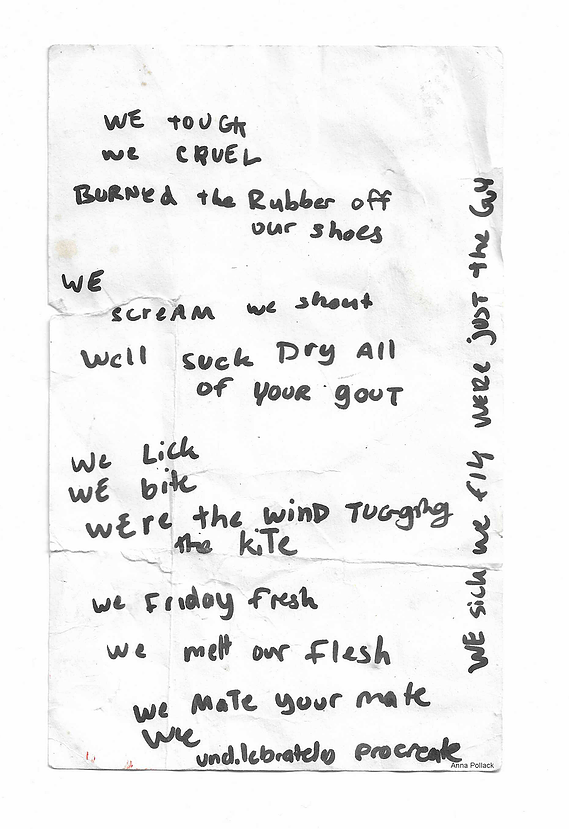 WE tOUGH
we CRUEL
BURNEd the Rubber off
our shoes
WE
screAM we shout
Well suck Dry All
of YOUR gOUT
We Lick
WE bite
wEre the winD TUGging
the KiTe
we Friday fresh
we melt our flesh
we MaTe your mate
We
procreate
WE sick we fly WERe jUST the GUY
Anna Pollack